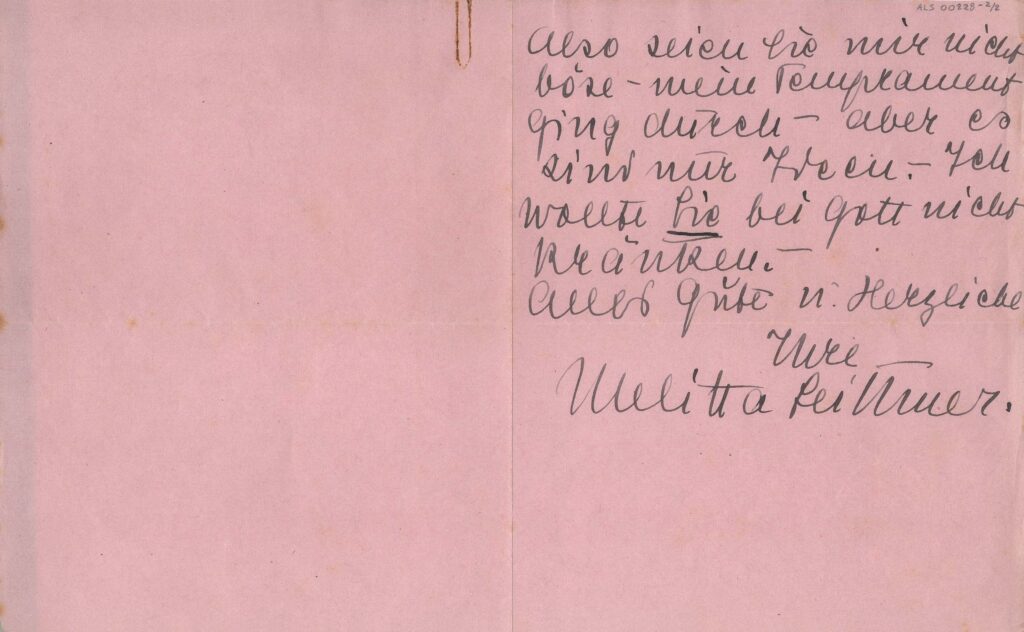 ALS 00228-2/2
Also seien Sie mir nicht
böse – mein Temprament
ging durch – aber es
sind nur Ideen. – Ich
wollte Sie bei Gott nicht
kränken. –
Alles Gute u. Herzliche
Ihre
Melitta Leittmer.